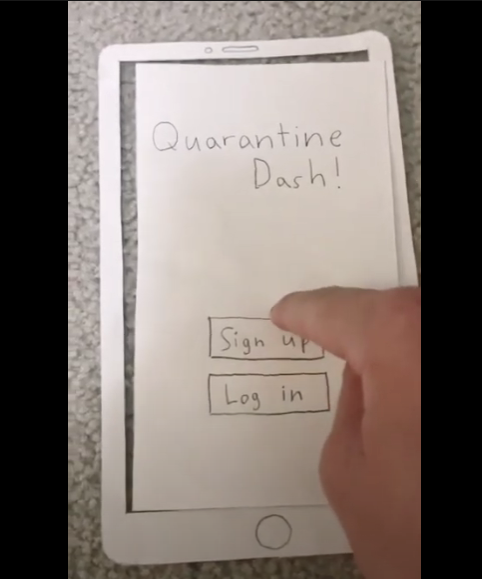 Quarantine
Dash!
Sign up
Log in